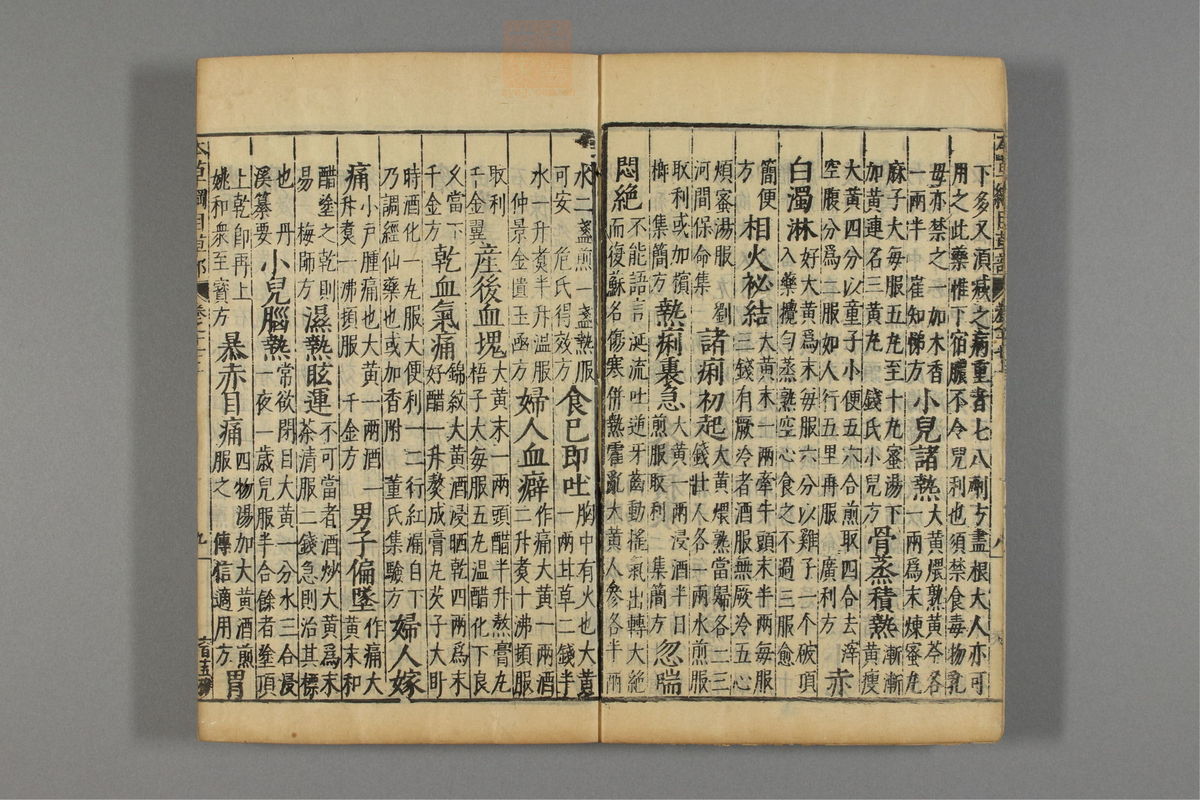 下多又湏減之病重者七八劑方盡根大人亦可
用之此藥惟下宿膿不令兒利也須禁食毒物乳
母亦禁之一加木香
一兩半 崔知悌方
小兒諸熱
大黃煨熟黃芩各
一兩爲末煉蜜丸
麻子大每服五丸至十丸蜜湯下
加黃連名三黃丸 錢氏小兒方
骨蒸積熱
漸漸
黃瘦
大黃四分以童子小便五六合煎取四合去滓
空腹分爲二服如人行五里再服 廣利方
赤
白濁淋
好大黃爲末每服六分以雞子一个破頂
入藥攪勻蒸熟空心食之不過三服愈
簡便
方
相火祕結
大黃末一兩牽牛頭末半兩每服
三錢有厥冷者酒服無厥冷五心
煩蜜湯服 劉
河間保命集
諸痢初起
大黃煨熟當歸各二三
錢壯人各一兩水煎服
取利或加檳
榔 集簡方
熱痢裏急
大黃一兩浸酒半日
煎服取利 集簡方
忽喘
悶絕
不能語言涎流吐逆牙齒動搖氣出轉大絕
而復蘇名傷寒併熱霍亂大黃人參各半兩
水二盞煎一盞熱服
可安 危氏得效方
食已即吐
胸中有火也大黃
一兩甘草二錢半
水一升煑半升温服
仲景金匱玉函方
婦人血癖
作痛大黃一兩酒
二升煑十沸頓服
取利
千金翼
産後血塊
大黃末一兩頭醋半升熬膏丸
梧子大每服五丸温醋化下良
乂當下
千金方
乾血氣痛
錦紋大黃酒浸晒乾四兩爲末
好醋一升熬成膏丸芡子大卧
時酒化一丸服大便利一二行紅漏自下
乃調經仙藥也或加香附 董氏集驗方
婦人嫁
痛
小戶腫痛也大黃一兩酒一
升煑一沸頓服 千金方
男子偏墜
作痛大
黃末和
醋塗之乾則
易 梅師方
濕熱眩運
不可當者酒炒大黃爲末
茶清服二錢急則治其標
也 丹
溪纂要
小兒腦熱
常欲閉目大黃一分水三合浸
一夜一歲兒服半合餘者塗頂
上乾即再上
姚和衆至寶方
暴赤目痛
四物湯加大黃酒煎
服之 傳信適用方
胃
本草綱目草部
九